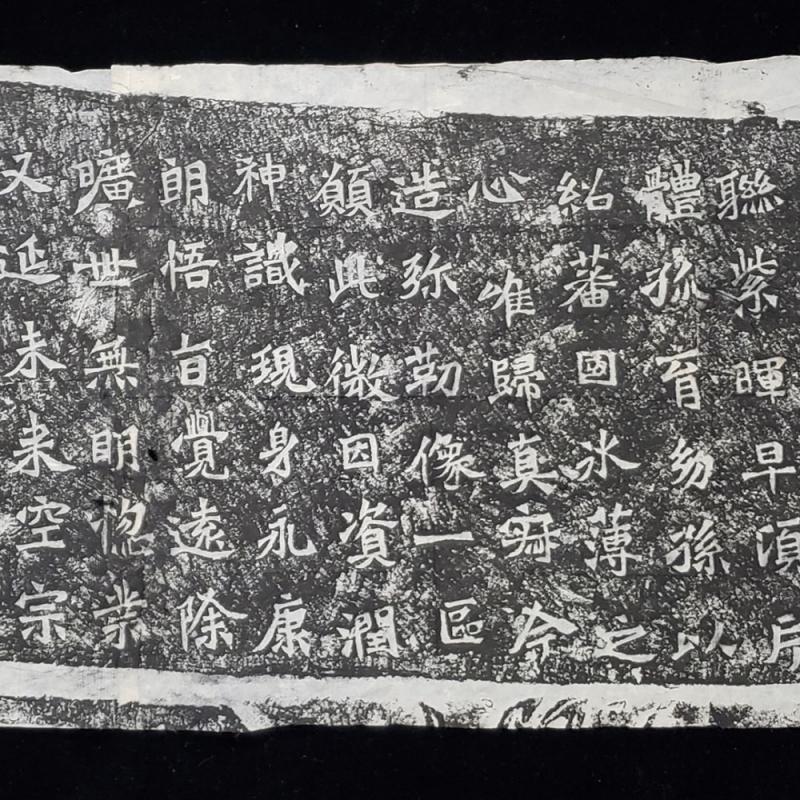 聯紫暉早頃片
體孤育幼孫以
紹蕃國冰薄之
心唯歸真寂今
造弥勒像一區
願此微因資潤
神識現身永康
朗悟旨覺遠除
曠世無明惚業
又延未来空宗